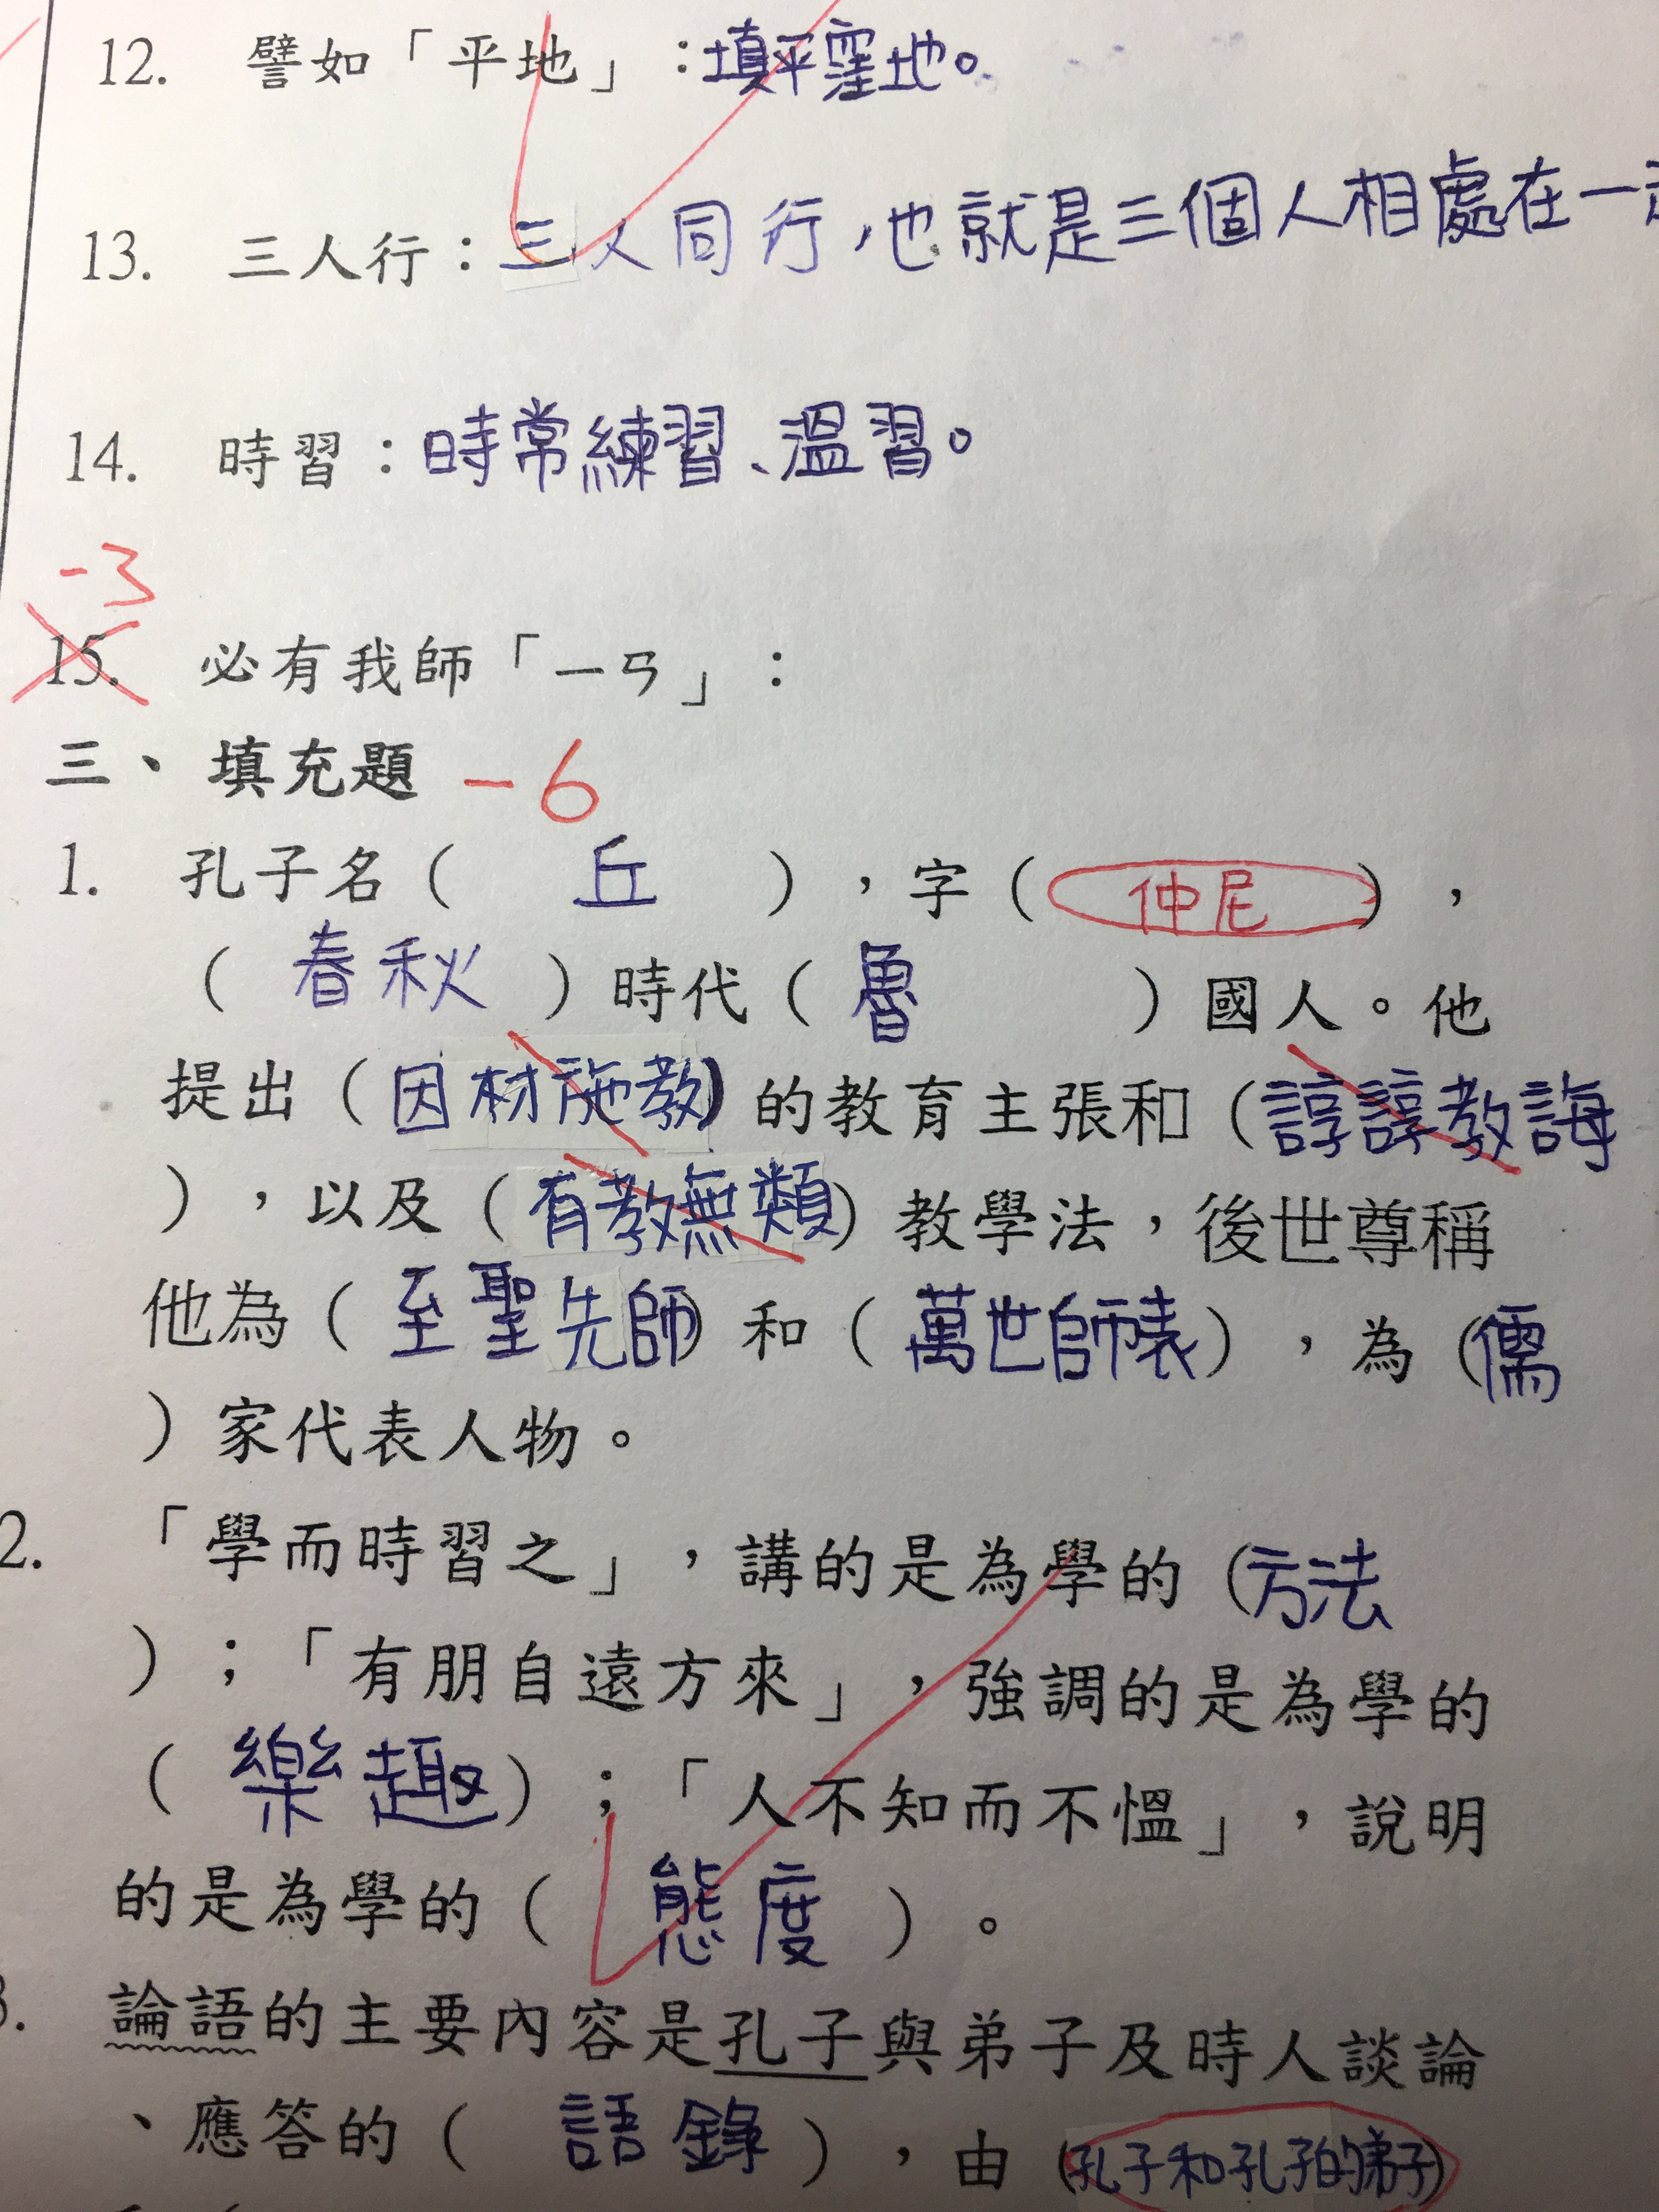 12. 譬如「平地」：填平窪地。
13. 三人行：三人同行，也就是三個人相處在一起
14. 時習：時常練習、溫習。
-3
15. 必有我師「ㄧㄢ」：
三、填充題 -6
1. 孔子名（ 丘 ），字（ 仲尼 ），
（ 春秋 ）時代（ 魯 ）國人。他
提出（因材施教）的教育主張和（諄諄教誨
），以及（有教無類）教學法，後世尊稱
他為（至聖先師）和（萬世師表），為（儒
）家代表人物。
2. 「學而時習之」，講的是為學的（方法
）；「有朋自遠方來」，強調的是為學的
（ 樂趣 ）；「人不知而不慍」，說明
的是為學的（ 態度 ）。
3. 論語的主要內容是孔子與弟子及時人談論
、應答的（ 語錄 ），由（孔子和孔子的弟子）